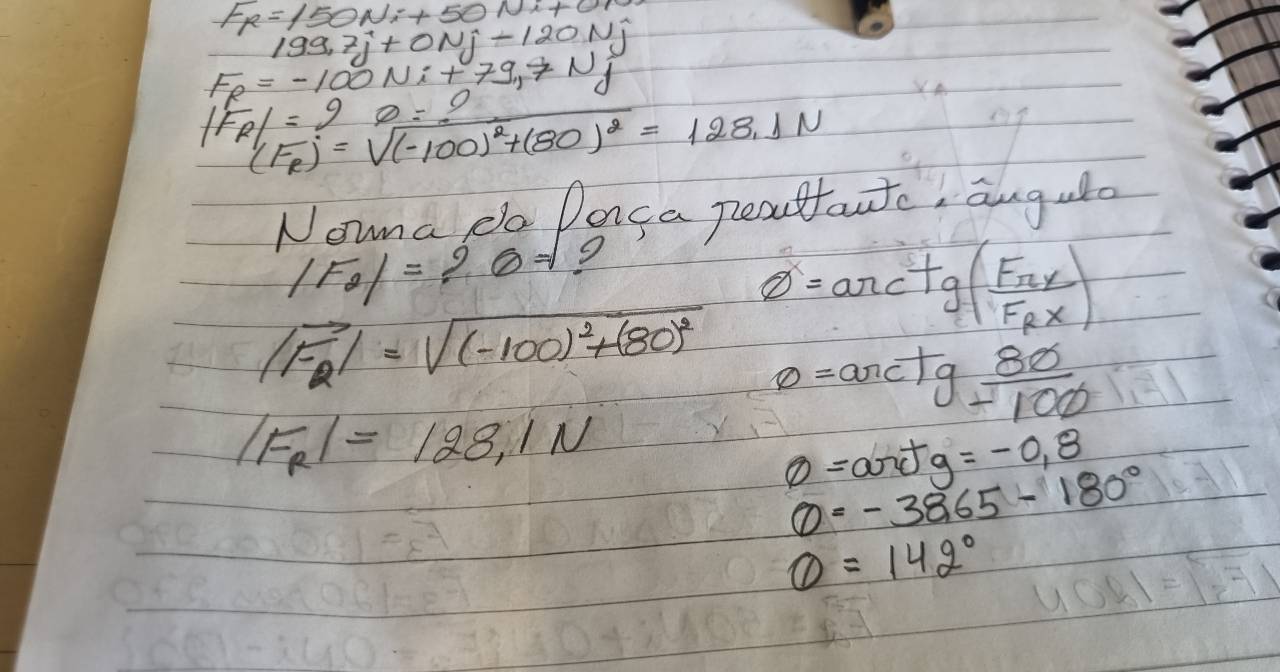 FR=150Ni+50Ni+0N
199,7j+0Nj-120Nj
FR=-100Ni+79,7Nj
|FR|=? Ø=?
(FR)=√(-100)²+(80)² = 128,1N
Norma da força resultante, ângulo
|FR|=? Ø=?
|FR| = √(-100)²+(80)²
|FR| = 128,1N
Ø=arctg(FRY/FRX)
Ø=arctg 80/-100
Ø=arctg=-0,8
Ø=-38,65-180°
Ø=142°